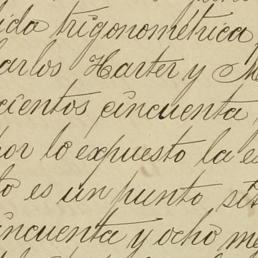 ida trigonometrica
Carlos Harter y M
cientos cincuenta
por lo expuesto la es
to es un punto, sit
incuenta y ocho me